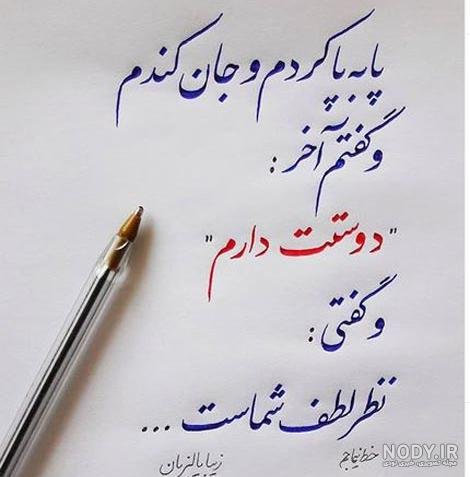 پا به پا کردم و جان کندم
و گفتم آخر :
"دوستت دارم"
و گفتی :
نظر لطف شماست ...
زیبا پالیزبان
NODY.IR